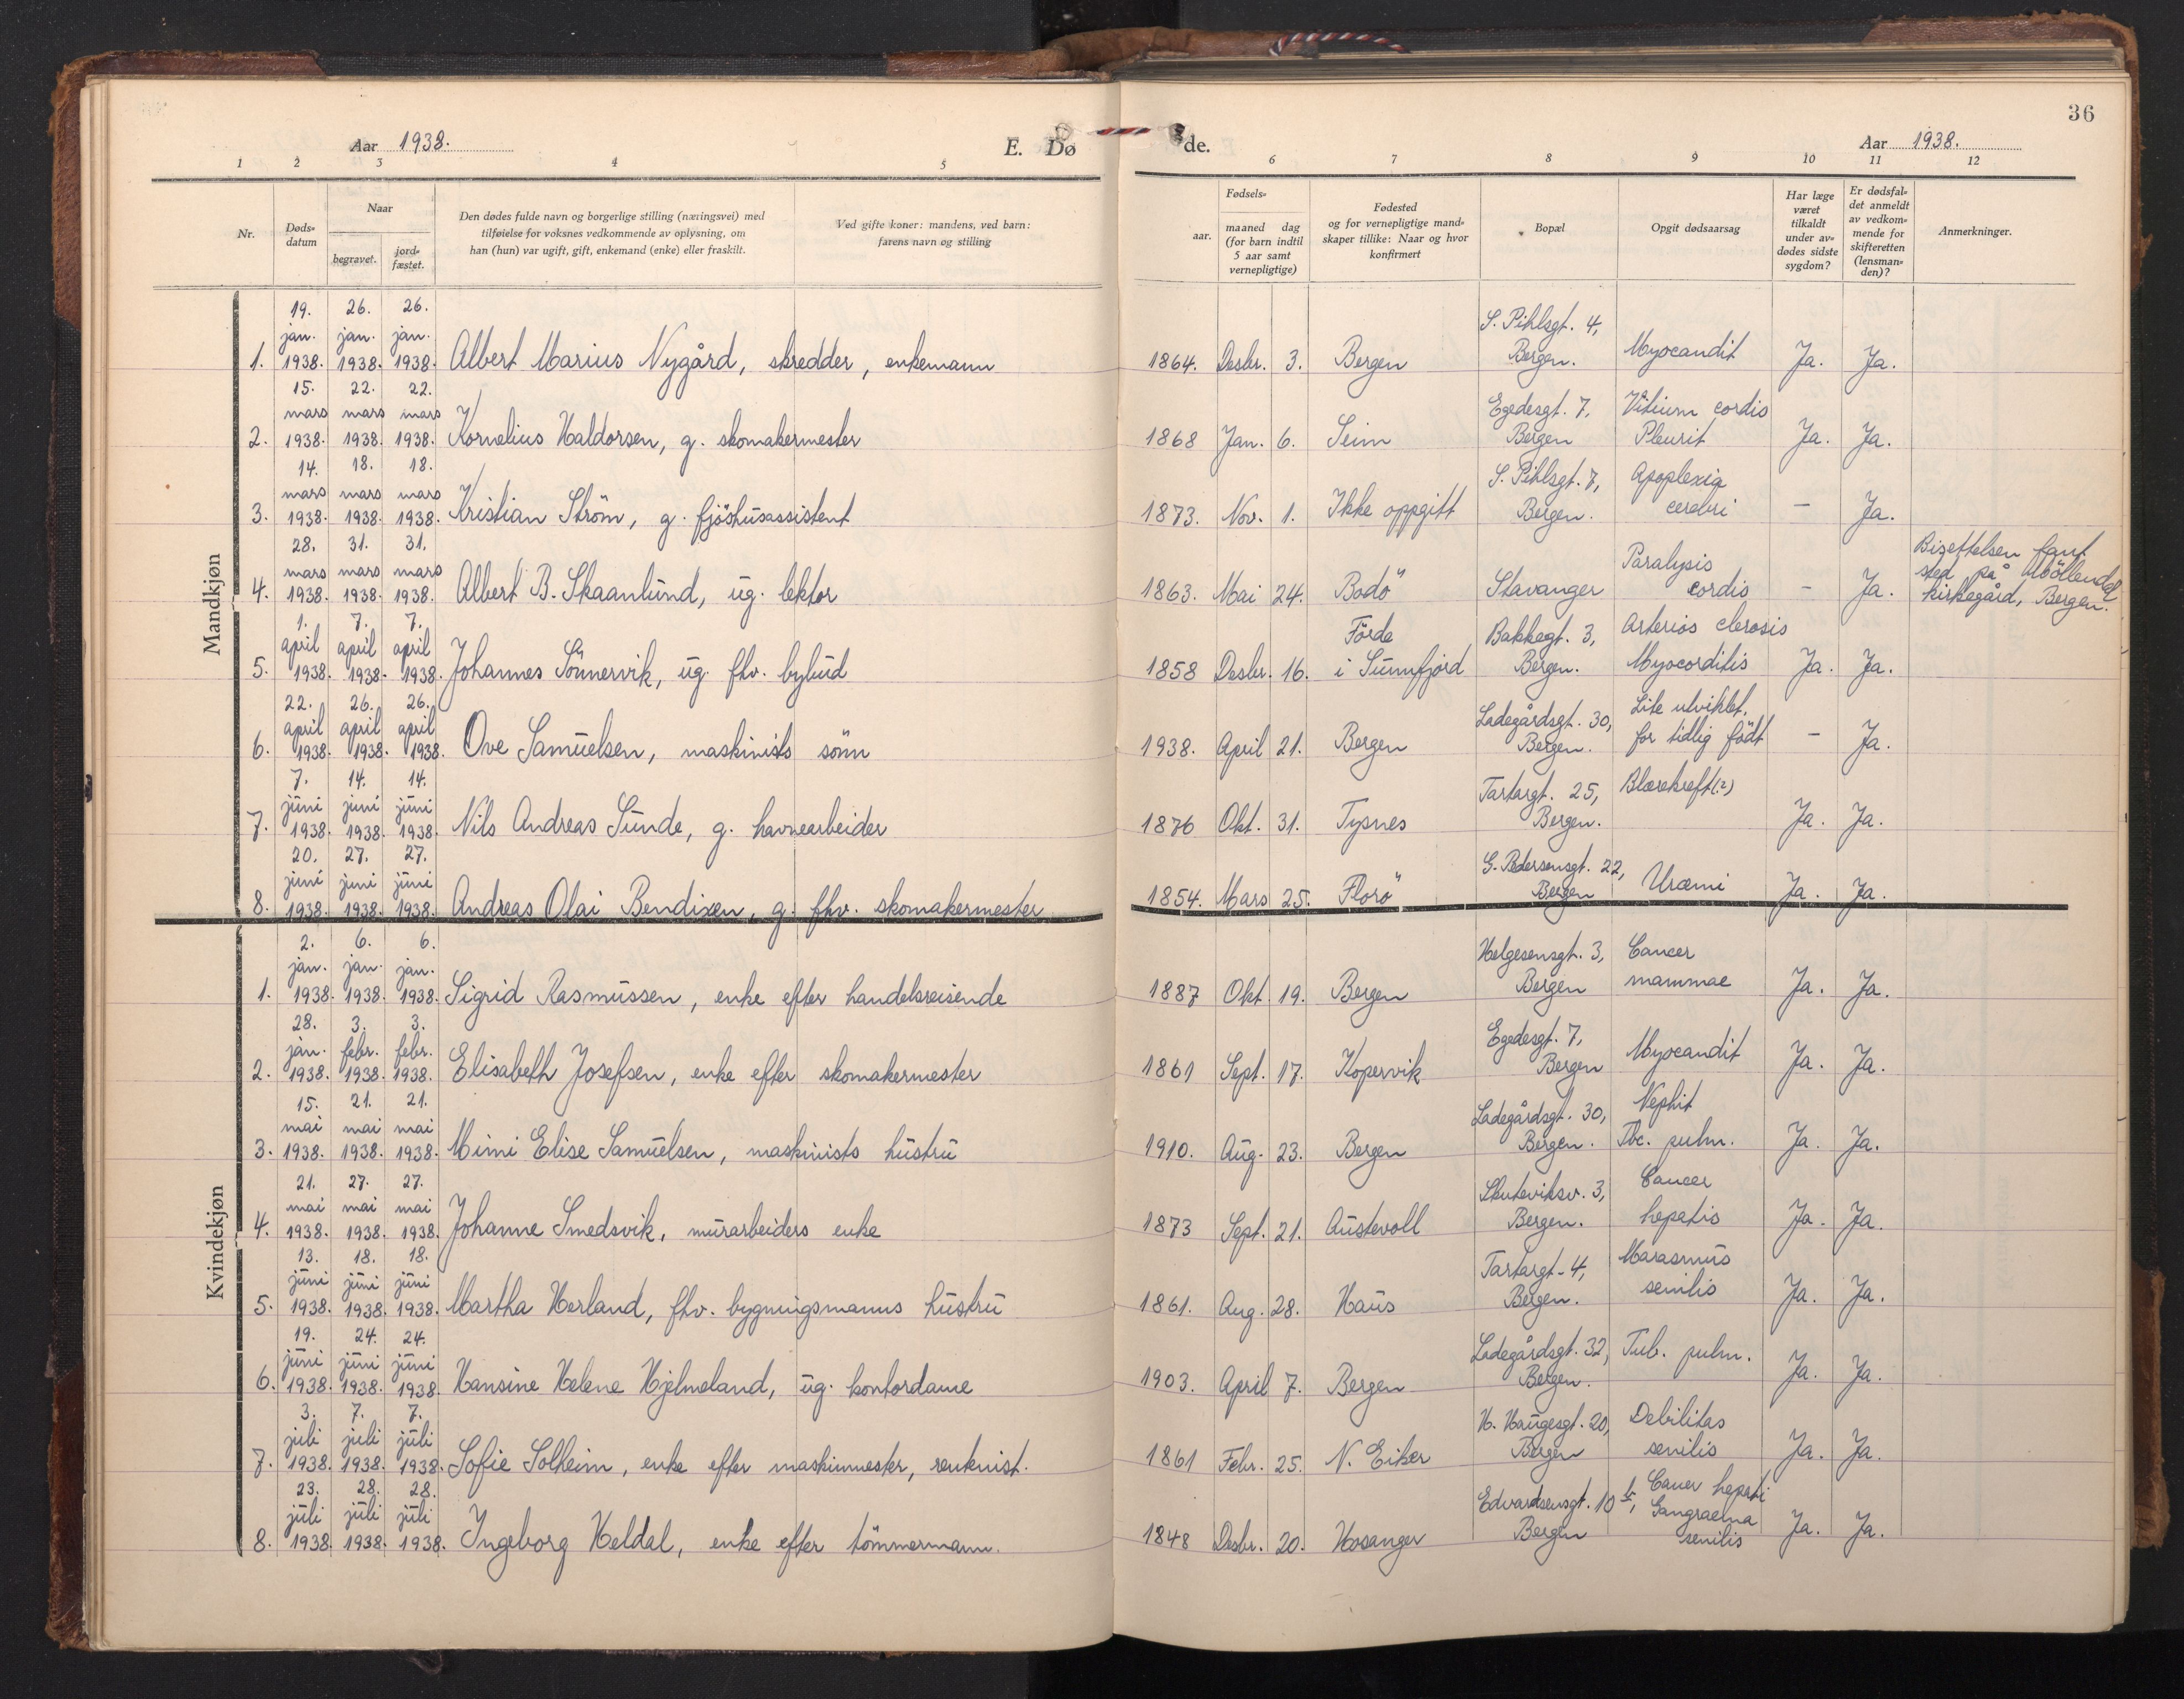 36
Aar 1938. E. Dø de. Aar 1938.
1 2 3 4 5 6 7 8 9 10 11 12
Nr.
Døds-
datum
Naar
begravet.
jord-
fæstet.
Den dødes fulde navn og borgerlige stilling (næringsvei) med
tilføielse for voksnes vedkommende av oplysning, om
han (hun) var ugift, gift, enkemand (enke) eller fraskilt.
Ved gifte koner: mandens, ved barn:
farens navn og stilling
Fødsels-
aar.
maaned dag
(for barn indtil
5 aar samt
vernepligtige)
Fødested
og for vernepligtige mand-
skaper tillike: Naar og hvor
konfirmert
Bopæl
Opgit dødsaarsag
Har læge
været
tilkaldt
under av-
dødes sidste
sygdom?
Er dødsfal-
det anmeldt
av vedkom-
mende for
skifteretten
(lensman-
den)?
Anmerkninger.
Mandkjøn
19. 26. 26. S. Pihlsgt. 4,
jan. jan. jan.
1. 1938. 1938. 1938. Albert Marius Nygård, skredder, enkemann 1864. Desbr. 3. Bergen Bergen. Myocardit Ja. Ja.
15. 22. 22. Egedesgt. 7, Vitium cordis
mars mars mars
2. 1938. 1938. 1938. Kornelius Haldorsen, g. skomakermester 1868 Jan. 6. Seim Bergen Pleurit Ja. Ja.
14. 18. 18. S. Pihlsgt. 7, Apoplexia
mars mars mars
3. 1938. 1938. 1938. Kristian Ström, g. fjöshusassistent 1873. Nov. 1. Ikke oppgitt Bergen. cerebri - Ja.
28. 31. 31. Paralysis Bisettelsen fant
mars mars mars sted på Möllendal
4. 1938. 1938. 1938. Albert B. Skaanlund, ug. lektor 1863. Mai 24. Bodö Stavanger cordis - Ja. kirkegård, Bergen.
1. 7. 7. Förde Bakkegt. 3, Arterios clerosis
april april april
5. 1938. 1938. 1938. Johannes Sönnervik, ug. fhv. bybud 1858 Desbr. 16. i Sunnfjord Bergen. Myocorditis Ja. Ja.
22. 26. 26. Ladegårdsgt. 30, Lite utviklet,
april april april
6. 1938. 1938. 1938. Ove Samuelsen, maskinists sönn 1938. April 21. Bergen Bergen. for tidlig födt - Ja.
7. 14. 14. Tartargt. 25, Blærekreft(?)
juni juni juni
7. 1938. 1938. 1938. Nils Andreas Sunde, g. havnearbeider 1876 Okt. 31. Tysnes Bergen. Ja. Ja.
20. 27. 27. G. Pedersensgt. 22,
juni juni juni
8. 1938. 1938. 1938. Andreas Olai Bendixen, g. fhv. skomakermester 1854. Mars 25. Florö Bergen Uræmi Ja. Ja.
Kvindekjøn
2. 6. 6. Helgesensgt. 3, Cancer
jan. jan. jan.
1. 1938. 1938. 1938. Sigrid Rasmussen, enke efter handelsreisende 1887 Okt 19. Bergen Bergen mammae Ja. Ja.
28. 3. 3. Egedesgt. 7,
jan. febr. febr.
2. 1938. 1938. 1938. Elisabeth Josefsen, enke efter skomakermester 1861 Sept. 17. Kopervik Bergen Myocardit Ja. Ja.
15. 21. 21. Ladegårdsgt. 30, Nephit
mai mai mai
3. 1938. 1938. 1938. Mimi Elise Samuelsen, maskinists hustru 1910. Aug. 23. Bergen Bergen. Tbc. pulm. Ja. Ja.
21. 27. 27. Skuteviksv. 3, Cancer
mai mai mai
4. 1938. 1938. 1938. Johanne Smedsvik, murarbeiders enke 1873 Sept. 21. Austevoll Bergen. hepatis Ja. Ja.
13. 18. 18. Tartargt. 4, Marasmus
juni juni juni
5. 1938. 1938. 1938. Martha Herland, fhv. bygningsmanns hustru 1861. Aug. 28. Haus Bergen. senilis Ja. Ja.
19. 24. 24. Ladegårdsgt. 32, Tub. pulm.
juni juni juni
6. 1938. 1938. 1938. Hansine Helene Hjelmeland, ug. kontordame 1903. April 7. Bergen Bergen. Ja. Ja.
3. 7. 7. H. Haugesgt. 20, Debilitas
juli juli juli
7. 1938. 1938. 1938. Sofie Solheim, enke efter maskinmester, 1861 Febr. 25. N. Eiker Bergen senilis Ja. Ja.
23. 28. 28. Edvardsensgt. 10 b, Cancer hepati
juli juli juli Gangraena
8. 1938. 1938. 1938. Ingeborg Heldal, enke efter tömmermann. 1848 Desbr. 20. Hosanger Bergen senilis Ja. Ja.